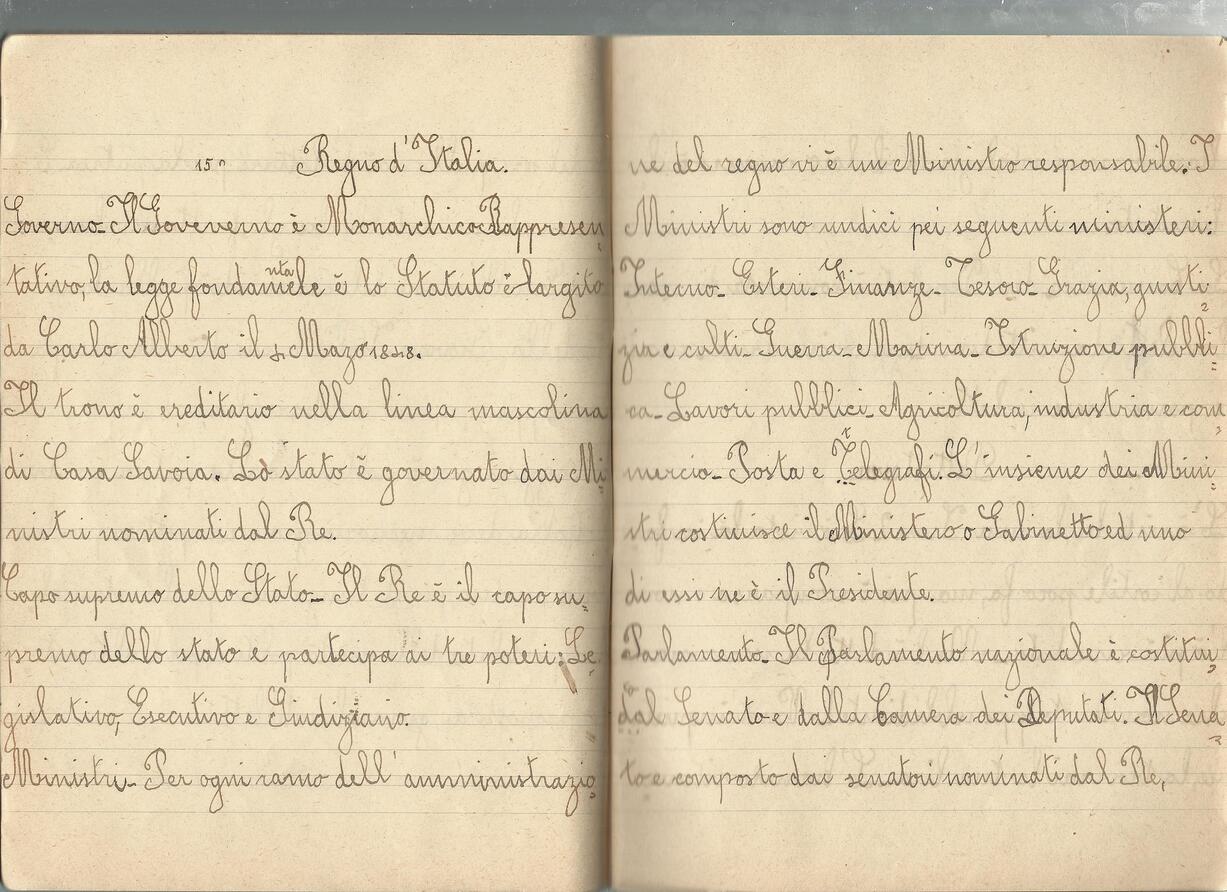 15º Regno d'Italia.
Governo- Il Goveverno è Monarchico Rappresen=
tativo, la legge fondamentale è lo Statuto è largito
da Carlo Alberto il 4 Mazo 1848.
Il trono è ereditario nella linea mascolina
di Casa Savoia. Lo stato è governato dai Mi=
nistri nominati dal Re.
Capo supremo dello Stato- Il Re è il capo su=
premo dello stato e partecipa ai tre poteri: Le=
gislativo, Esecutivo e Giudiziario.
Ministri- Per ogni ramo dell'amministrazio=
ne del regno vi è un Ministro responsabile. I
Ministri sono undici pei seguenti ministeri:
Interno- Esteri- Finanze- Tesoro- Grazia, giusti=
zia e culti- Guerra- Marina- Istruzione pubbli=
ca- Lavori pubblici- Agricoltura, industria e com=
mercio- Posta e Telegrafi. L'insieme dei Mini=
stri costiuisce il Ministero o Gabinetto ed uno
di essi ne è il Presidente.
Parlamento- Il Parlamento nazionale è costitui=
dal Senato e dalla Camera dei Deputati. Il Sena=
to e composto dai senatori nominati dal Re,